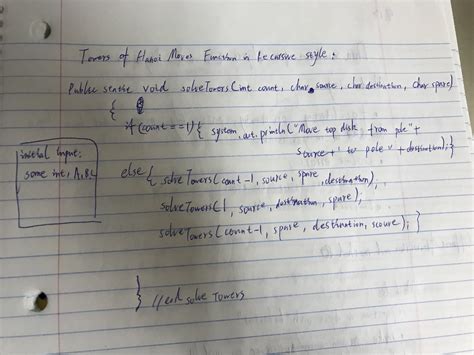 Towers of Hanoi Moves Function in Recursive style:
Public static void solveTowers(int count, char source, char destination, char spare)
{
if (count==1){ system.out.println("Move top disk from pole"+
source+"to pole"+destination);}
initial Input:
some int, A,B,C
else{ solveTowers(count-1, source, spare, destination);
solveTowers(1, source, destination, spare);
solveTowers(count-1, spare, destination, scoure);}
} //end solve Towers